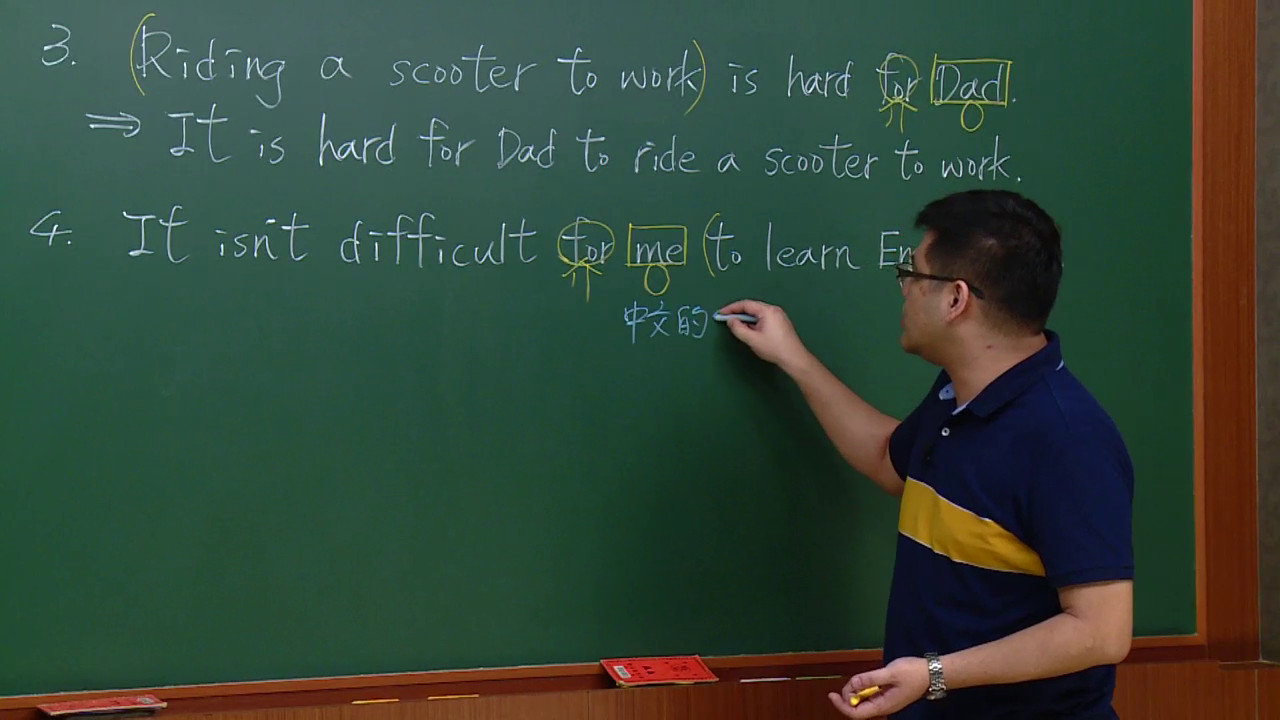 3. (Riding a scooter to work) is hard for Dad.
⇒ It is hard for Dad to ride a scooter to work.
4. It isn't difficult for me (to learn En
介 O
中文的